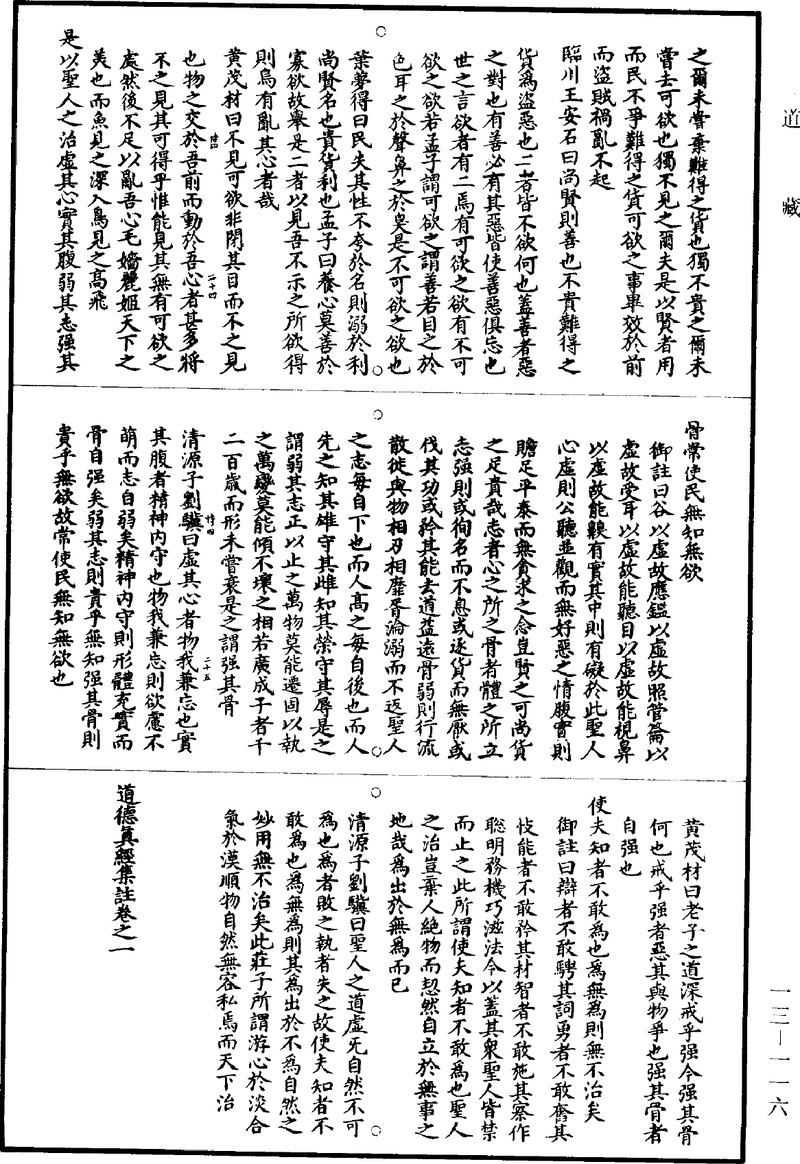 道藏
之爾未嘗棄難得之貨也獨不貴之爾未
嘗去可欲也獨不見之爾夫是以賢者用
而民不爭難得之貨可欲之事畢效於前
而盜賊禍亂不起
臨川王安石曰尚賢則善也不貴難得之
貨爲盜惡也二者皆不欲何也蓋善者惡
之對也有善必有其惡皆使善惡俱忘也
世之言欲者有二焉有可欲之欲有不可
欲之欲若孟子謂可欲之謂善若目之於
色耳之於聲鼻之於臭是不可欲之欲也
葉夢得曰民失其性不夸於名則溺於利
尚賢名也貴貨利也孟子曰養心莫善於
寡欲故舉是二者以見吾不示之所欲得
則烏有亂其心者哉
黃茂材曰不見可欲非閉其目而不之見
二十四
也物之交於吾前而動於吾心者甚多將
不之見其可得乎惟能見其無有可欲之
處然後不足以亂吾心毛嬙麗姬天下之
美也而魚見之深入鳥見之高飛
是以聖人之治虛其心實其腹弱其志强其
骨常使民無知無欲
御註曰谷以虛故應鑑以虛故照管籥以
虛故受耳以虛故能聽目以虛故能視鼻
以虛故能齅有實其中則有礙於此聖人
心虛則公聽並觀而無好惡之情腹實則
贍足平泰而無貪求之念豈賢之可尚貨
之足貴哉志者心之所之骨者體之所立
志强則或徇名而不息或逐貨而無厭或
伐其功或矜其能去道益遠骨弱則行流
散徙與物相刃相靡胥淪溺而不返聖人
之志每自下也而人高之每自後也而人
先之知其雄守其雌知其榮守其辱是之
謂弱其志正以止之萬物莫能遷固以執
之萬變莫能傾不壞之相若廣成子者千
二百歲而形未嘗衰是之謂强其骨
二十五
清源子劉驥曰虛其心者物我兼忘也實
其腹者精神內守也物我兼忘則欲慮不
萌而志自弱矣精神內守則形體充實而
骨自强矣弱其志則貴乎無知强其骨則
貴乎無欲故常使民無知無欲也
黃茂材曰老子之道深戒乎强今强其骨
何也戒乎强者惡其與物爭也强其骨者
自强也
使夫知者不敢爲也爲無爲則無不治矣
御註曰辯者不敢騁其詞勇者不敢奮其
忮能者不敢矜其材智者不敢施其察作
聰明務機巧滋法令以蓋其衆聖人皆禁
而止之此所謂使夫知者不敢爲也聖人
之治豈棄人絶物而恝然自立於無事之
地哉爲出於無爲而已
清源子劉驥曰聖人之道虛旡自然不可
爲也爲者敗之執者失之故使夫知者不
敢爲也爲無爲則其爲出於不爲自然之
妙用無不治矣此莊子所謂游心於淡合
氣於漠順物自然無容私焉而天下治
道德眞經集註卷之一
一三—一一六